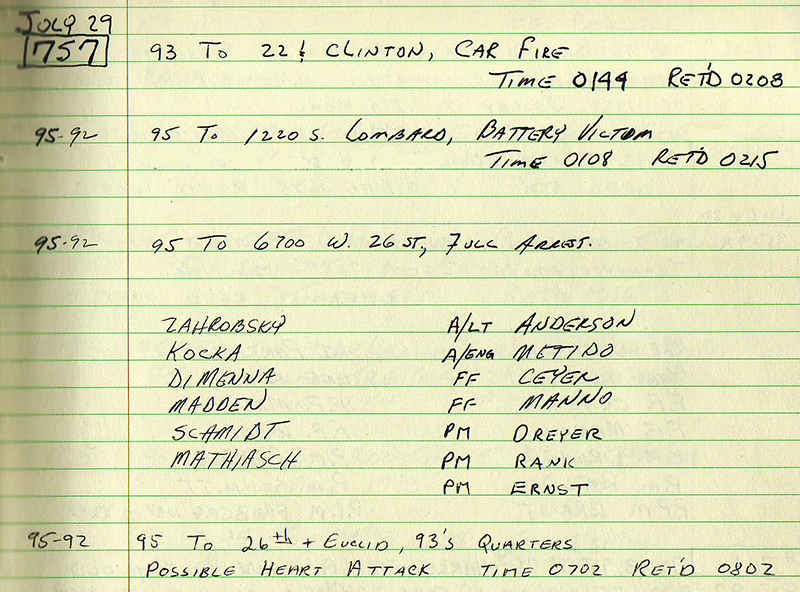 JULY 29
757 93 TO 22 & CLINTON, CAR FIRE
TIME 0144 RET'D 0208
95-92 95 TO 1220 S. LOMBARD, BATTERY VICTOM
TIME 0108 RET'D 0215
95-92 95 TO 6700 W. 26 ST, FULL ARREST.
ZAHROBSKY A/LT ANDERSON
KOCKA A/ENG METIDO
DIMENNA FF CEYER
MADDEN FF MANNO
SCAMIDT PM DREYER
MATHIASCH PM RANK
PM ERNST
95-92 95 TO 26th + EUCLID, 93'S QUARTERS
POSSIBLE HEART ATTACK TIME 0702 RET'D 0802